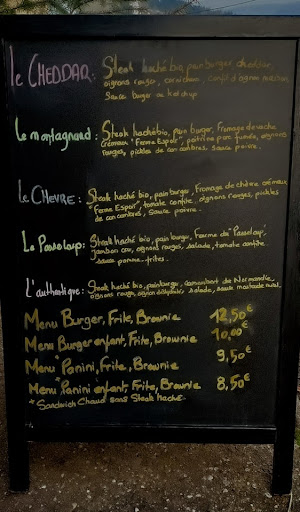 Le CHEDDAR: Steak haché bio, pain burger, cheddar,
oignons rouges, cornichons, confit d'oignon maison
Sauce burger ou ketchup
Le montagnard: Steak haché bio, pain burger, fromage de vache
crémeux "Ferme Espoir", poitrine porc fumée, oignons
rouges, pickles de concombres. sauce poivre.
Le CHEVRE: Steak haché bio, pain burger, fromage de chèvre crémeux
"Ferme Espoir", tomate confite, oignons rouges, pickles
de concombres, Sauce poivre.
La Passeloup: Steak haché bio, pain burger,
jambon cru, oignons rouges, salade, tomate confite.
sauce pomme-frites.
L'authentique: Steak haché bio, pain burger, camembert de Normandie,
oignons rouges, salade, sauce moutarde miel.
Menu Burger, Frite, Brownie 12,50€
Menu Burger enfant, Frite, Brownie 10,00€
Menu *Panini, Frite, Brownie 9,50€
Menu *Panini enfant, Frite, Brownie 8,50€
* Sandwich Chaud sans Steak haché